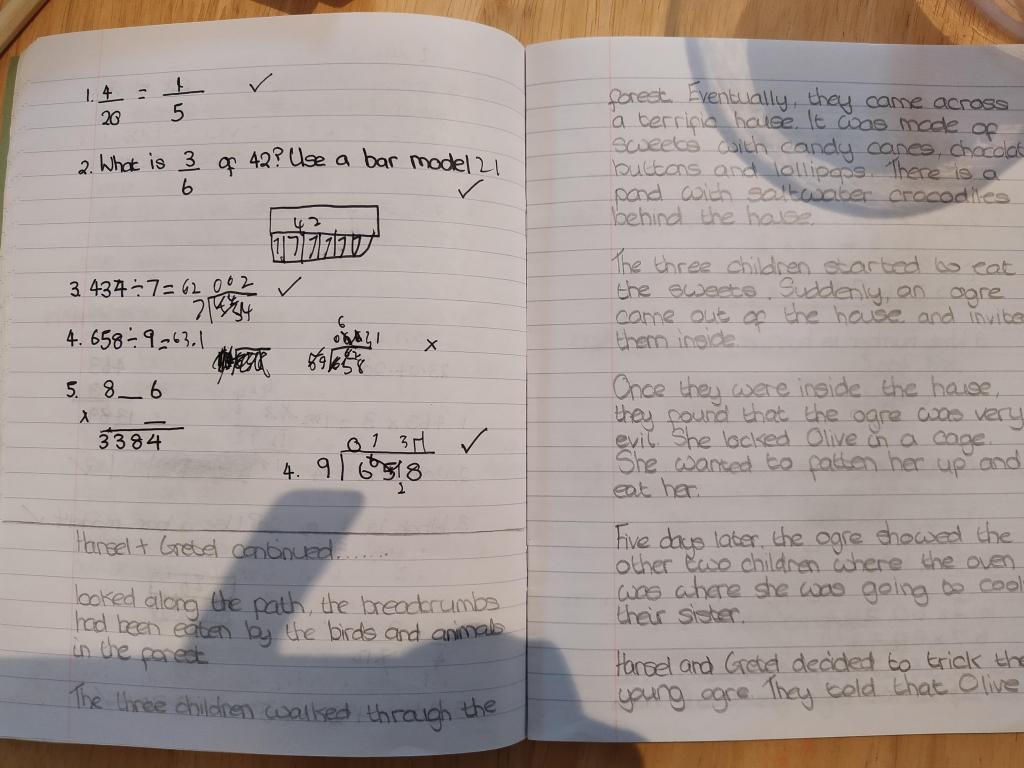 1. 4/20 = 1/5 ✓
2. What is 3/6 of 42? Use a bar model 21
✓
42
7 7 7 7 7 7
3. 434 ÷ 7 = 62 002 ✓
7
4. 658 ÷ 9 = 63.1
x
5. 8 __ 6
x __
3384
4. 9 658 ✓
Hansel + Gretel continued.......
looked along the path, the breadcrumbs
had been eaten by the birds and animals
in the forest
The three children walked through the
forest. Eventually, they came across
a terrific house. It was made of
sweets with candy canes, chocolat
buttons and lollipops. There is a
pond with saltwater crocodiles
behind the house.
The three children started to eat
the sweets. Suddenly, an ogre
came out of the house and invite
them inside.
Once they were inside the house,
they found that the ogre was very
evil. She locked Olive in a cage.
She wanted to fatten her up and
eat her.
Five days later, the ogre showed the
other two children where the oven
was where she was going to cook
their sister.
Hansel and Gretel decided to trick the
young ogre. They told that Olive